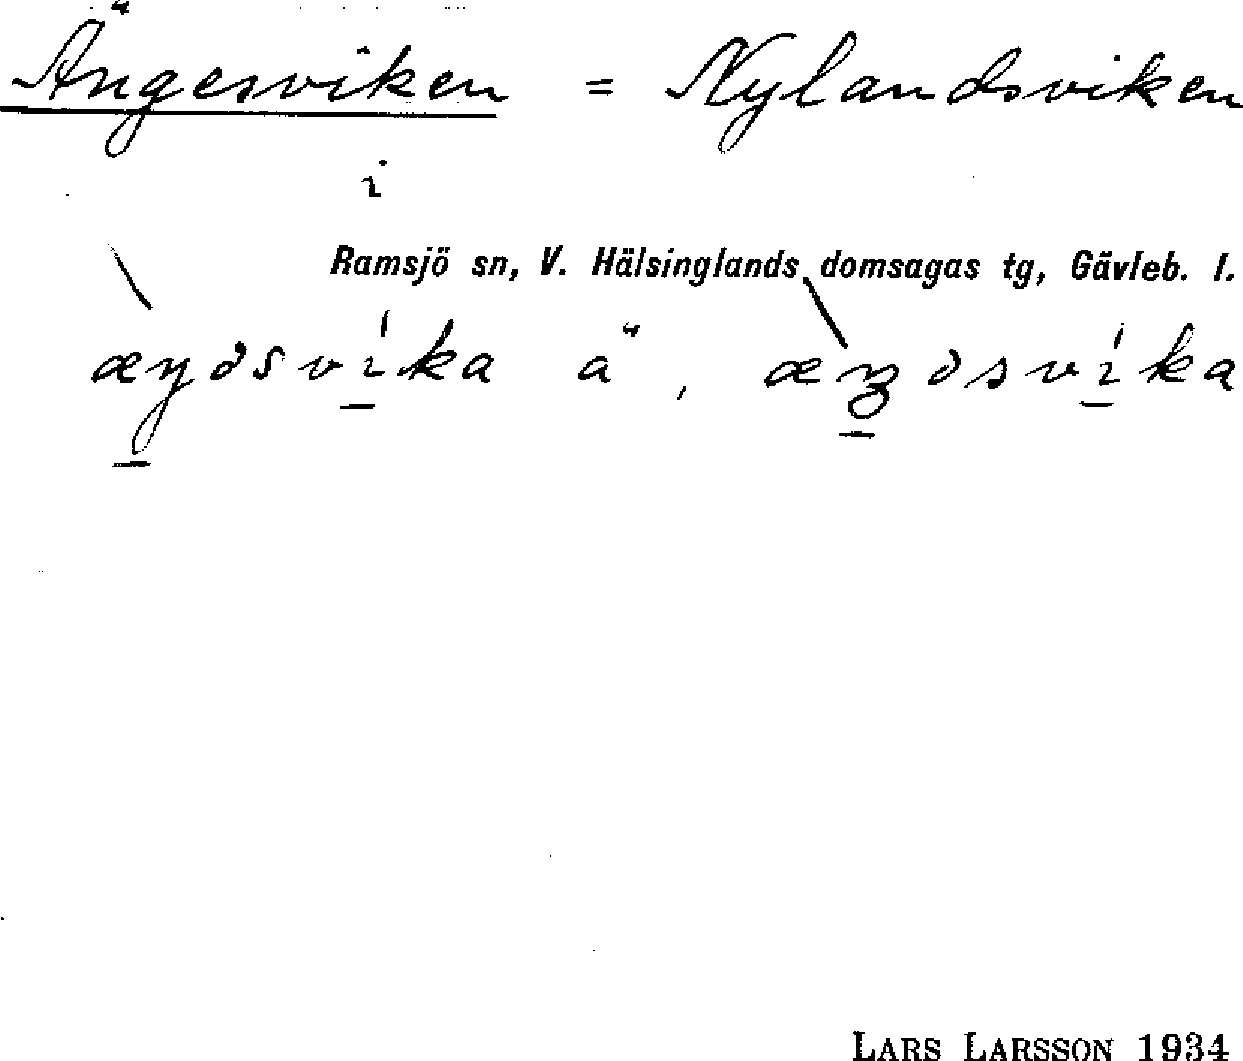 Ängesviken = Nylandsviken
i
Ramsjö sn, V. Hälsinglands domsagas tg, Gävleb. l.
LARS LARSSON 1934